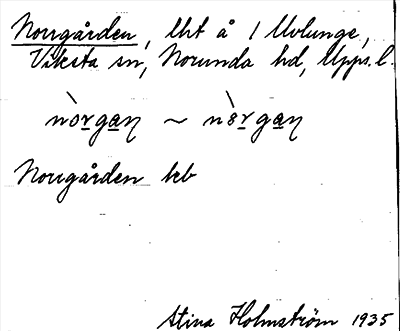 Norrgården, lht å 1 Uvlunge,
Viksta sn, Norunda hd, Upps. l.
nòrgaṉ ~ nèrgaṉ
Norrgården kb
Stina Holmström 1935